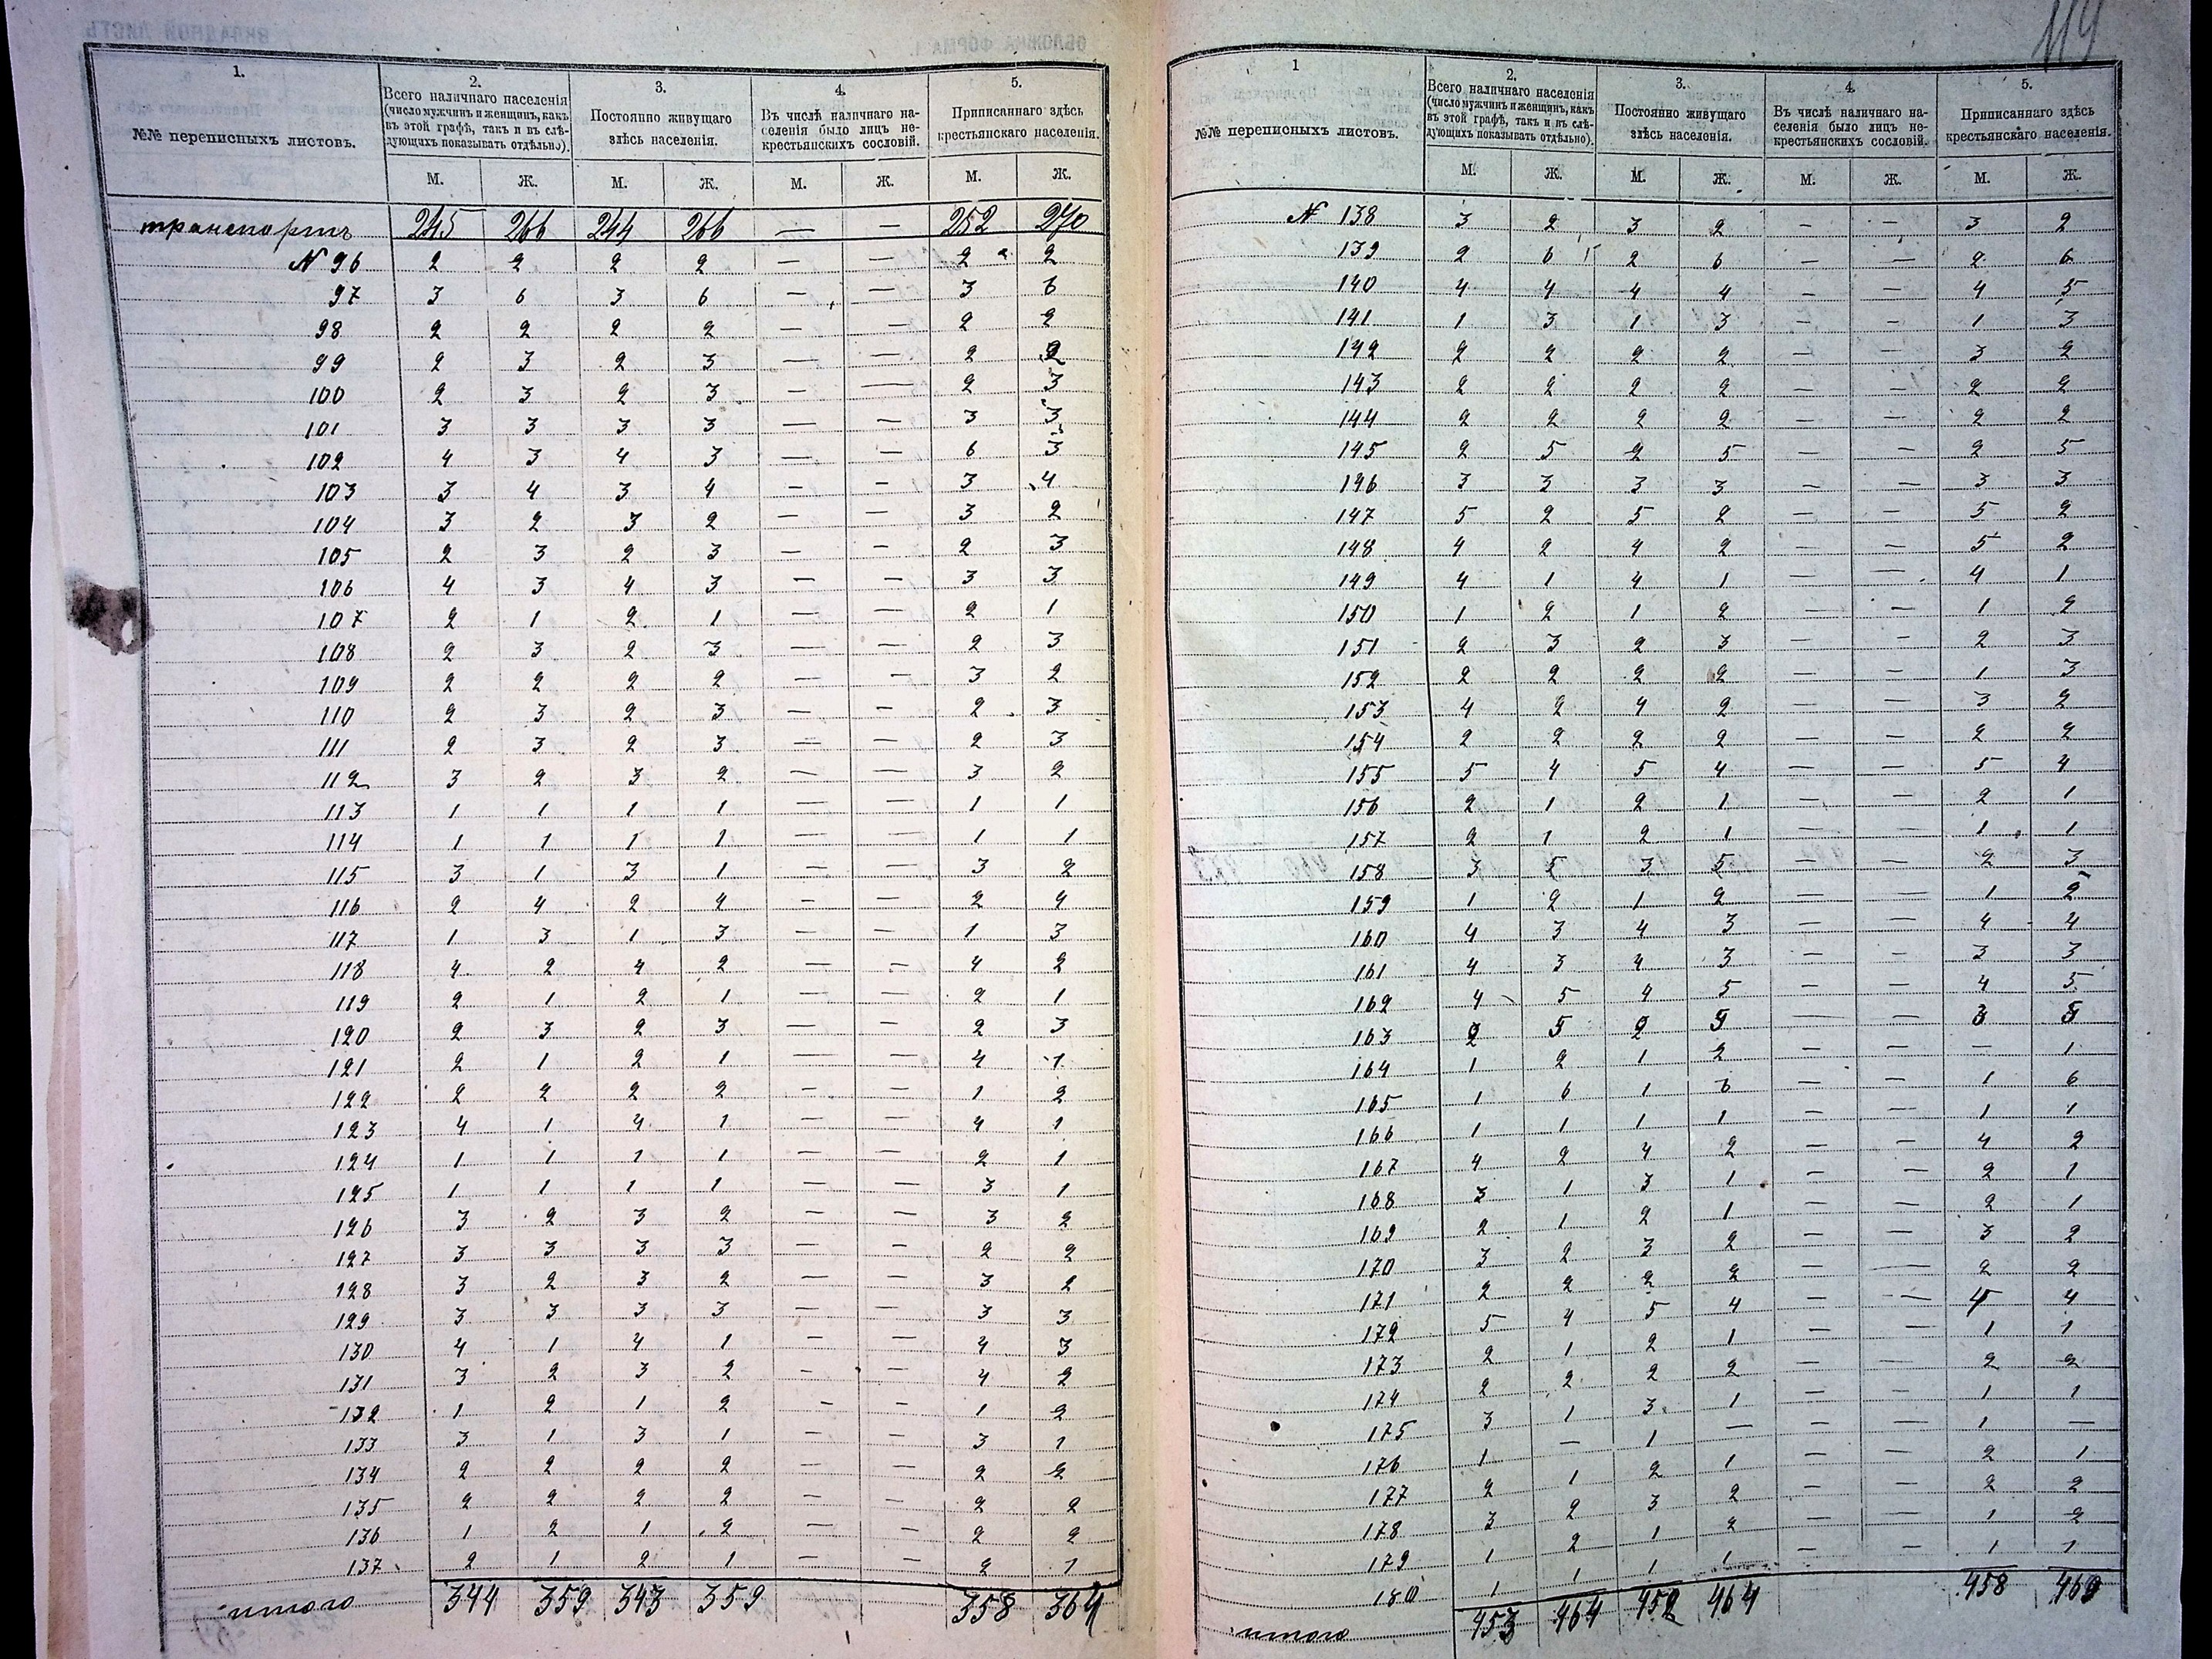 119
1. 2. 3. 4. 5.
№№ переписныхъ листовъ.
Всего наличнаго населенія (число мужчинъ и женщинъ, какъ въ этой графѣ, такъ и въ слѣдующихъ показывать отдѣльно).
Постоянно живущаго здѣсь населенія.
Въ числѣ наличнаго населенія было лицъ некрестьянскихъ сословій.
Приписаннаго здѣсь крестьянскаго населенія.
М. Ж. М. Ж. М. Ж. М. Ж.
транспортъ 245 266 244 266 — — 252 270
№ 96 2 2 2 2 — — 2 2
97 3 6 3 6 — — 3 6
98 2 2 2 2 — — 2 2
99 2 3 2 3 — — 2 2
100 2 3 2 3 — — 2 3
101 3 3 3 3 — — 3 3
102 4 3 4 3 — — 6 3
103 3 4 3 4 — — 3 4
104 3 2 3 2 — — 3 2
105 2 3 2 3 — — 2 3
106 4 3 4 3 — — 3 3
107 2 1 2 1 — — 2 1
108 2 3 2 3 — — 2 3
109 2 2 2 2 — — 3 2
110 2 3 2 3 — — 2 3
111 2 3 2 3 — — 2 3
112 3 2 3 2 — — 3 2
113 1 1 1 1 — — 1 1
114 1 1 1 1 — — 1 1
115 3 1 3 1 — — 3 2
116 2 4 2 4 — — 2 4
117 1 3 1 3 — — 1 3
118 4 2 4 2 — — 4 2
119 2 1 2 1 — — 2 1
120 2 3 2 3 — — 2 3
121 2 1 2 1 — — 4 1
122 2 2 2 2 — — 1 2
123 4 1 4 1 — — 4 1
124 1 1 1 1 — — 2 1
125 1 1 1 1 — — 3 1
126 3 2 3 2 — — 3 2
127 3 3 3 3 — — 2 2
128 3 2 3 2 — — 3 2
129 3 3 3 3 — — 3 3
130 4 1 4 1 — — 4 3
131 3 2 3 2 — — 4 2
132 1 2 1 2 — — 1 2
133 3 1 3 1 — — 3 1
134 2 2 2 2 — — 2 2
135 2 2 2 2 — — 2 2
136 1 2 1 2 — — 2 2
137 2 1 2 1 — — 2 1
итого 344 359 343 359 358 364
1 2. 3. 4. 5.
№№ переписныхъ листовъ.
Всего наличнаго населенія (число мужчинъ и женщинъ, какъ въ этой графѣ, такъ и въ слѣдующихъ показывать отдѣльно).
Постоянно живущаго здѣсь населенія.
Въ числѣ наличнаго населенія было лицъ некрестьянскихъ сословій.
Приписаннаго здѣсь крестьянскаго населенія.
М. Ж. М. Ж. М. Ж. М. Ж.
№ 138 3 2 3 2 — — 3 2
139 2 6 2 6 — — 2 6
140 4 4 4 4 — — 4 5
141 1 3 1 3 — — 1 3
142 2 2 2 2 — — 3 2
143 2 2 2 2 — — 2 2
144 2 2 2 2 — — 2 2
145 2 5 2 5 — — 2 5
146 3 3 3 3 — — 3 3
147 5 2 5 2 — — 5 2
148 4 2 4 2 — — 5 2
149 4 1 4 1 — — 4 1
150 1 2 1 2 — — 1 2
151 2 3 2 3 — — 2 3
152 2 2 2 2 — — 1 3
153 4 2 4 2 — — 3 2
154 2 2 2 2 — — 2 2
155 5 4 5 4 — — 5 4
156 2 1 2 1 — — 2 1
157 2 1 2 1 — — 1 1
158 3 5 3 5 — — 2 3
159 1 2 1 2 — — 1 2
160 4 3 4 3 — — 4 4
161 4 3 4 3 — — 3 3
162 4 5 4 5 — — 4 5
163 2 5 2 5 — — 3 5
164 1 2 1 2 — — — 1
165 1 6 1 6 — — 1 6
166 1 1 1 1 — — 1 1
167 4 2 4 2 — — 4 2
168 3 1 3 1 — — 2 1
169 2 1 2 1 — — 2 1
170 3 2 3 2 — — 3 2
171 2 2 2 2 — — 2 2
172 5 4 5 4 — — 4 4
173 2 1 2 1 — — 1 1
174 2 2 2 2 — — 2 2
175 3 1 3 1 — — 1 1
176 1 — 1 — — — 1 —
177 2 1 2 1 — — 2 1
178 3 2 3 2 — — 2 2
179 1 2 1 2 — — 1 2
180 1 1 1 1 — — 1 1
итого 453 464 452 464 458 469